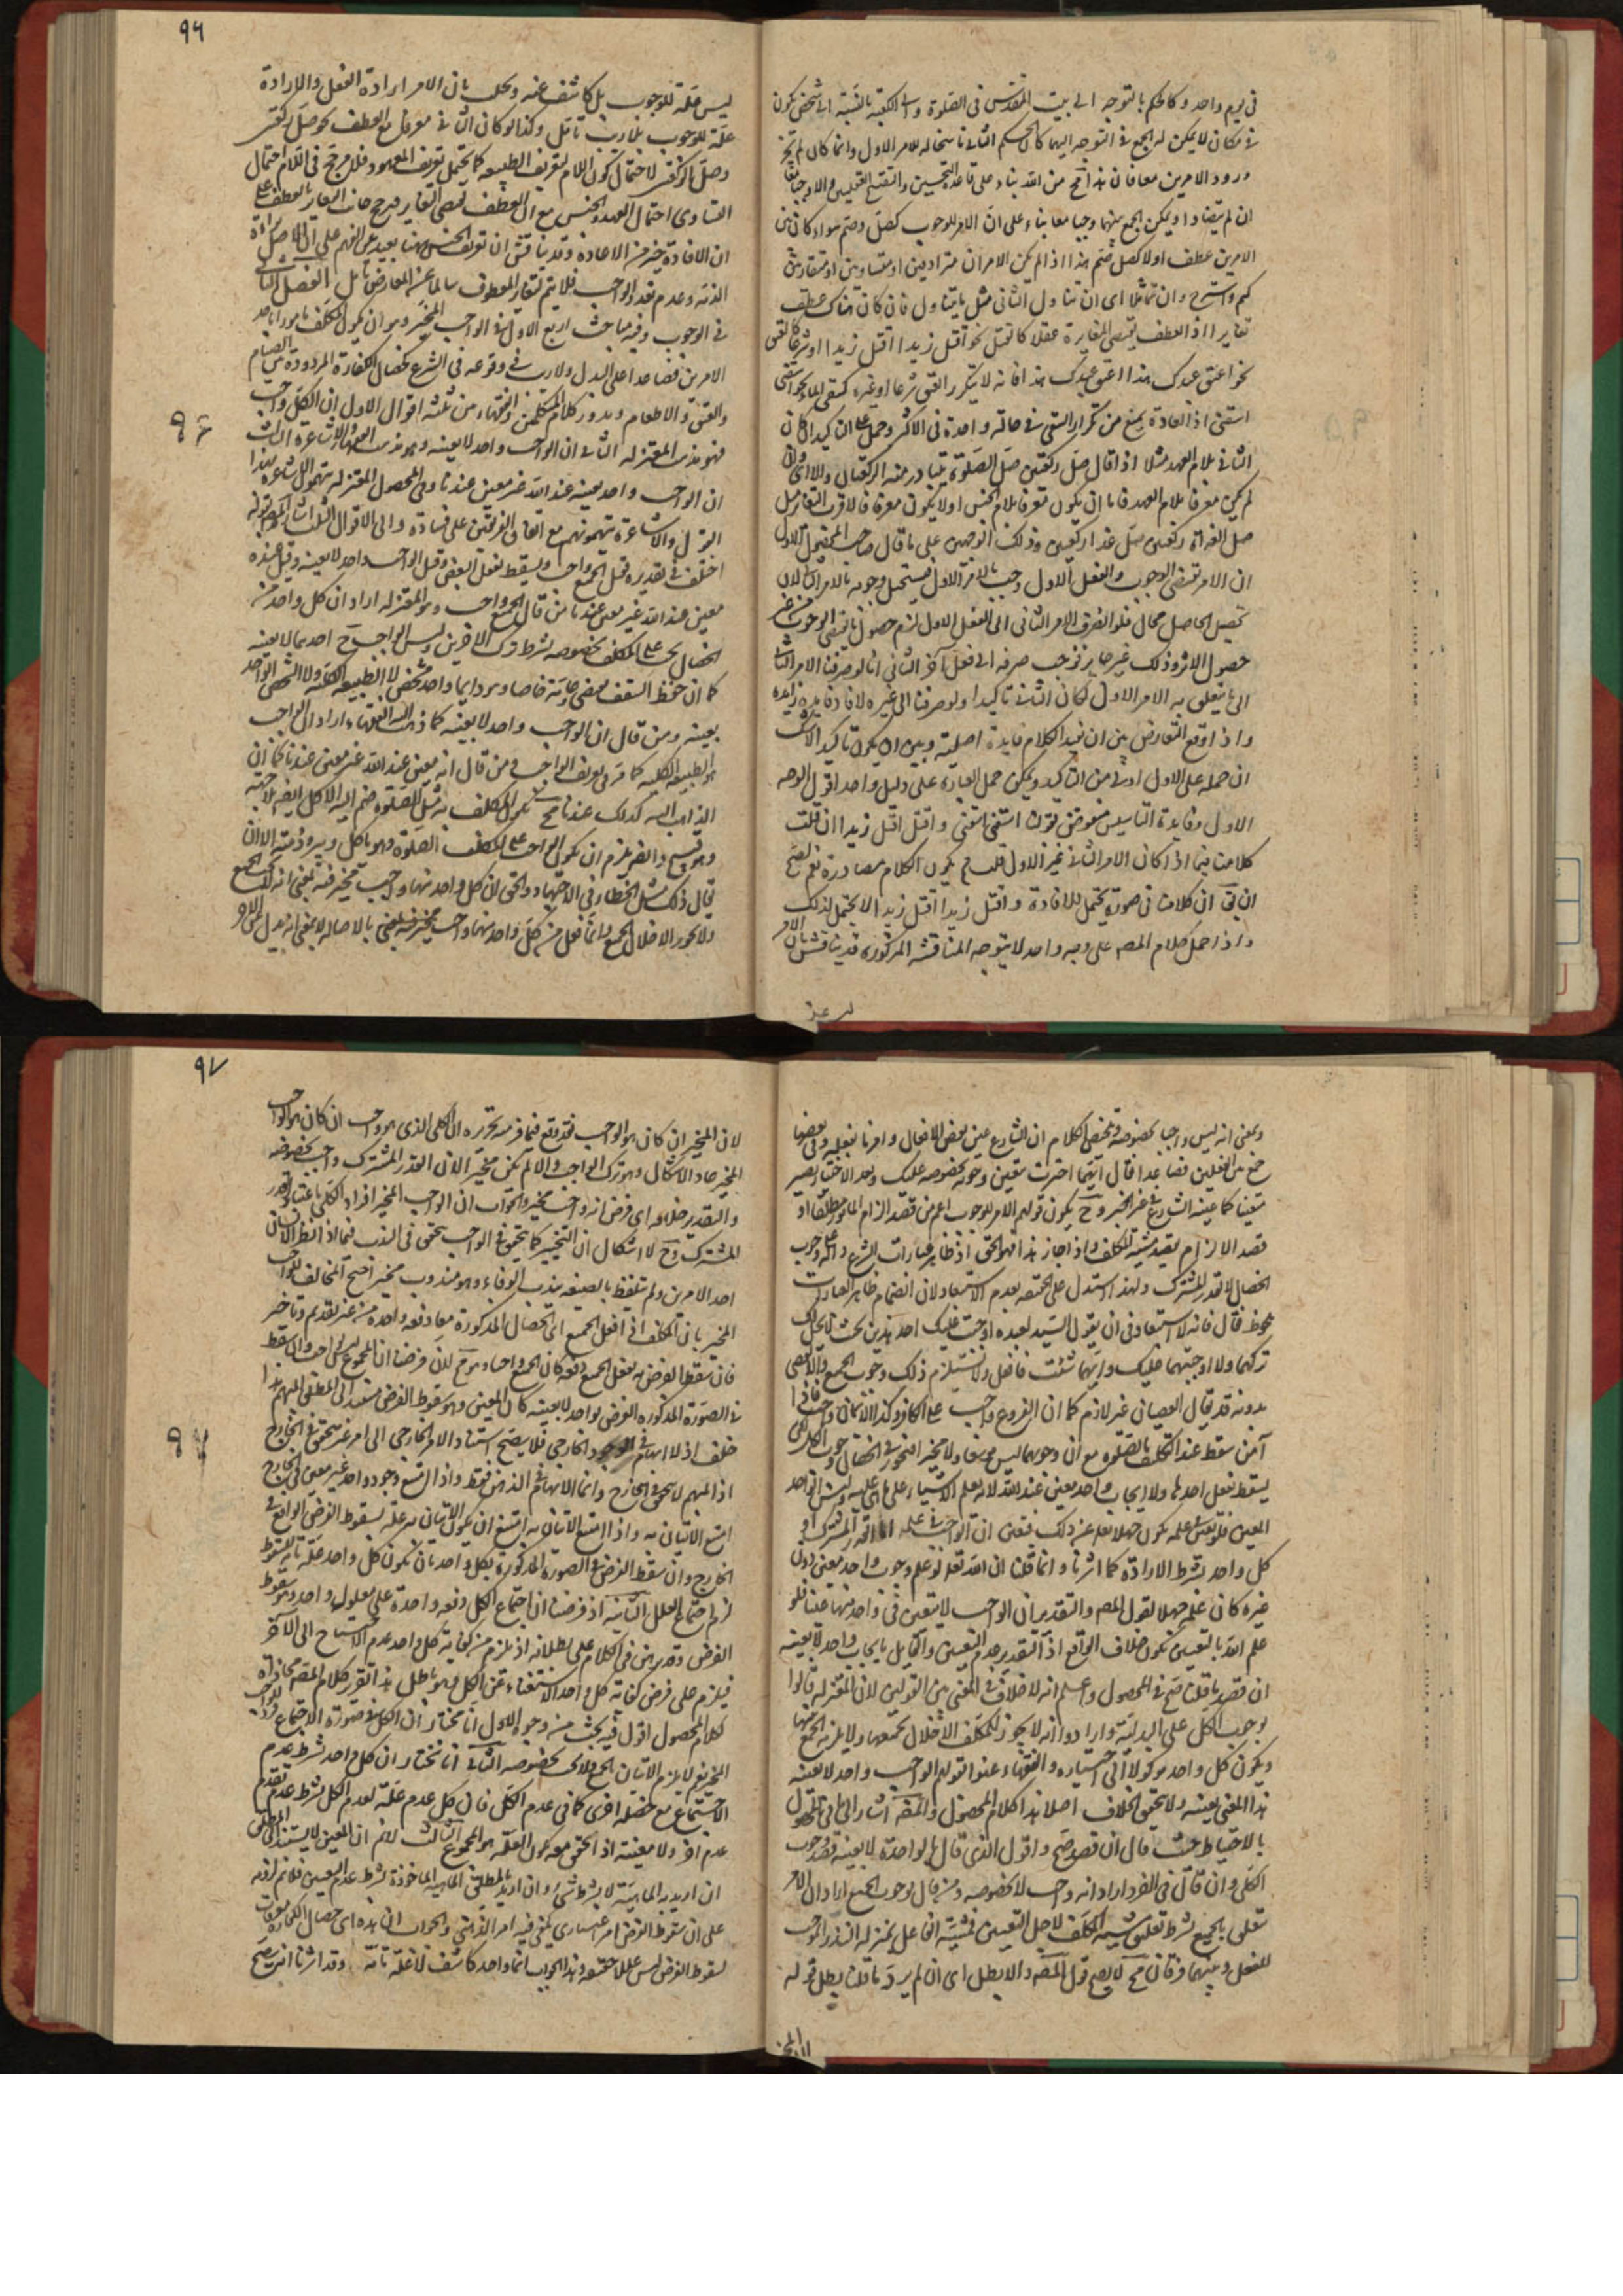 في يوم واحد وكالحكم بالتوجه الى بيت المقدس في الصلوة والى الكعبة بالنسبة الى شخص يكون
في مكان لا يمكن له الجمع في التوجه اليهما كان الحكم الثاني ناسخا له للامر الاول وانما كان لم يجز
ورود الامرين معا فان هذا قبح من الله بناء على قاعدة التحسين والتقبيح العقليين والا وجبا معا
ان لم يتضادا ويمكن الجمع بينهما وجبا معا بناء على ان الامر للوجوب كصل وصم سواء كان بين
الامرين عطف اولا كصل صم هذا اذا لم يكن الامران مترادفين او متساويين او متقاربين
وان تماثلا اى ان تناول الثاني مثل ما يتناول فان كان هناك عطف
تغايرا اذ العطف يقتضى المغايرة عقلا كان نحو اقتل زيدا اقتل زيدا او شرعا كالعتق
نحو اعتق عبدك هذا اعتق عبدك هذا فانه لا يتكرر العتق شرعا او غيره كسقى الماء نحو اسقنى
اسقنى اذ العادة يمنع من تكرار السقى في حالة واحدة في الاكثر وحمل على التأكيد ان كان
الثاني بلام العهد مثلا اذا قال صل ركعتين صل الصلوة يتبادر منه الركعتان والا اى وان
لم يكن معرفا بلام العهد فاما ان يكون معرفا بلام الجنس اولا يكون معرفا فالاقرب التغاير مثل
صل الغداة ركعتين صل غدا ركعتين وذلك لوجهين على ما قال صاحب المحصول الاول
ان الامر يقتضى الوجوب والفعل الاول وجب بالامر الاول فيستحيل وجوبه بالامر الثاني لان
تحصيل الحاصل محال فلو انصرف الامر الثاني الى الفعل الاول لزم حصول ما يقتضى الوجوب من غير
حصول الاثر وذلك غير جايز فوجب صرفه الى فعل آخر الثاني انا لو صرفنا الامر الثاني
الى ما يتعلق به الامر الاول لكان الثاني تأكيدا ولو صرفنا الى غيره لافاد فايدة زايدة
واذا وقع التعارض بين ان يفيد الكلام فايدة اصلية وبين ان يكون تأكيدا لا شك
ان حمله على الاول اولى من التأكيد ويمكن حمل العبارة على دليل واحد اقول الوجه
الاول وفايدة التأسيس منقوض بقولنا اسقنى اسقنى واقتل اقتل زيدا ان قلت
كلامنا فيما اذا كان الامر الثاني غير الاول قلت يكون الكلام مصادرة نعم يصح
ان يق ان كلامنا في صورة يحتمل للافادة واقتل زيدا اقتل زيدا لا يحتمل لذلك
واذا حمل كلام المصه على وجه واحد لا يتوجه المناقشة المذكورة قد يناقش بان الامر
ليس علة
٩٦
ليس علة للوجوب بل كاشف عنه ويجاب بان الامر ارادة الفعل والارادة
علة للوجوب بلا ريب تأمل وكذا لو كان الثاني معرفا مع العطف نحو صل ركعتين
وصل الركعتين لاحتمال كون اللام لتعريف الطبيعة كما يحتمل تعريف المعهود فلا مرجح في اللام احتمال
التساوى احتمال العهد والجنس مع ان العطف يقتضى التغاير فيرجح جانب التغاير بالعطف على
ان الافادة خير من الاعادة وقد يناقش ان تعريف الجنس هنا بعيد عن الفهم على ان الاصل براءة
الذمة وعدم تعدد الواجب فلا يتم تغاير المعطوف سالما عن المعارض تأمل الفصل الثاني
في الوجوب وفيه مباحث اربع الاول في الواجب المخير وهو ان يكون المكلف مأمورا باحد
الامرين فصاعدا على البدل ولا ريب في وقوعه في الشرع كخصال الكفارة المرددة بين الصيام
والعتق والاطعام ويدور كلام المتكلمين والفقهاء من ثلثة اقوال الاول ان الكل واجب
فهو مذهب المعتزلة الثاني ان الواجب واحد لا بعينه وهو مذهب الفقهاء والاشاعرة الثالث
ان الواجب واحد بعينه عند الله غير معين عندنا وفي المحصول المعتزلة يتهمون الاشاعرة بهذا
القول والاشاعرة يتهمونهم مع اتفاق الفريقين على فساده والى الاقوال الثلث اشار المصه بقوله
اختلف في تقديره فقيل الجميع واجب ويسقط بفعل البعض وقيل الواجب واحد لا بعينه وقيل عنده
معين عند الله غير معين عندنا من قال الجميع واجب وهو المعتزلة اراد ان كل واحد من
الخصال يجب على المكلف بخصوصه بشرط ترك الاخرين وليس الواجب ح احدهما لا بعينه
كما ان حفظ السقف يقتضى دعامة خاصة وهو دايما واحد شخصى لا الطبيعة الكلية ولا الشخص الواحد
بعينه ومن قال ان الواجب واحد لا بعينه كما ذهب اليه الفقهاء اراد ان الواجب
هو الطبيعة الكلية كما مر في تعريف الواجب ومن قال انه معين عند الله غير معين عندنا كما ان
الذاهب اليه كذلك عندنا ح يكون المكلف به مثل الصلوة ضم اليه الاكل ايضا لا حينه
وهو قبيح وايضا يلزم ان يكون الواجب على المكلف الصلوة وهو يأكل ويبرء ذمته الا ان
يقال ذلك مثل الخطاء في الاجتهاد والحق ان كل واحد منها واجب مخير فيه بمعنى انه لا يجب الجميع
ولا يجوز الاخلال بالجميع وانما فعل من كل واحد منهما واجب مخير فيه يعنى بالاصالة لا بمعنى انه بدل عن الاخر
٩٦
وبمعنى انه ليس واجبا بخصوصه وتلخيص الكلام ان الشارع عين بعض الافعال وامرنا بفعله وفي بعضها
خير بين الفعلين فصاعدا فقال ايهما اخترت يتعين وجوبه بخصوصه عليك وبعد الاختيار يصير
متعينا كما عينه الشارع في غير المخير وح يكون قولهم الامر للوجوب اعم من قصد الزام المأمور مطلقا او
قصد الالزام بقيد مشية المكلف واذا جاز هذا فهو الحق اذ ظاهر عبارات الشرع دالة على وجوب
الخصال لا القدر المشترك ولهذا استدل على المختصة بعدم الاستبعاد لان انضمام ظاهر العبارات
ملحوظ قال فانه لا استبعاد في ان يقول السيد لعبده اوجبت عليك احد هذين بحيث لا يحل لك
تركهما ولا اوجبتهما عليك وايهما شئت فافعل ولا يستلزم ذلك وجوب الجميع والا لعصى
بدونه قد يقال العصيان غير لازم كما ان الفروع واجب على الكافر وكذا الايمان واجب فاذا
آمن سقط عند التكلف بالصلوة مع ان وجوبهما ليس موسعا ولا مخيرا فيجوز في الخصال وجوب الكل لكن
يسقط بفعل احدها ولا ايجاب واحد معين عند الله لانه يعلم الاشياء على ما هي عليه وليس الواحد
المعين فلو تعين في علمه يكون جهلا تعالى عن ذلك فتعين ان الواجب في علمه اما القدر المشترك او
كل واحد بشرط الارادة كما اشرنا وانما قلنا ان الله تعالى لو علم وجوب واحد معين دون
غيره كان علمه جهلا لقول المصه والتقدير ان الواجب لا يتعين في واحد منهما عينا فلو
علم الله بالتعيين يكون خلاف الواقع اذ التقدير عدم التعيين والقايل بايجاب واحد لا بعينه
ان قصد ما قلت صح في المحصول واعلم انه لا خلاف في المعنى بين القولين لان المعتزلة قالوا
بوجوب الكل على البدلية وارادوا انه لا يجوز للمكلف الاخلال بجميعها ولا يلزمه الجمع بينها
ويكون كل واحد موكولا الى اختياره والفقهاء عنوا بقولهم الواجب واحد لا بعينه
هذا المعنى بعينه ولا يتحقق الخلاف اصلا هذا كلام المحصول والمصه اشار الى ما في المحصول
بالاحتياط حيث قال ان قصد صح واقول الذى قال بالواحدة لا بعينه قصد وجوب
الكلى وان قال في الفرد اراد انه واجب لا بخصوصه ومن قال بوجوب الجميع اراد ان الامر
تعلق بالجميع بشرط تعلق مشية المكلف لاجل التعيين فمشية الفاعل بمنزلة النذر الموجب
للفعل وبينهما فرقان ح لا يصح قول المصه والا بطل اى ان لم يرد ما قلت بطل قوله
لان المخير
٩٧
لان المخير ان كان هو الواجب فقد وقع فيما فر منه تحريره ان الكلى الذى هو واجب ان كان هو الواجب
المخير عاد الاشكال وهو ترك الواجب والا لم يكن مخيرا لان القدر المشترك واجب بخصوصه
والتقدير خلافه اى فرض انه واجب مخير والجواب ان الواجب المخير افراد الكلى باعتبار القدر
المشترك وح لا اشكال ان التخيير كما يتحقق في الواجب يتحقق في الندب فيما اذا نظر الانسان
احد الامرين ولم يتلفظ بالصيغة يندب الوفاء وهو مندوب مخير احتج المخالف للواجب
المخير بان المكلف اذا فعل الجميع اى الخصال المذكورة معا دفعة واحدة من غير تقديم وتأخير
فان سقط الفرض به بفعل الجميع دفعة كان الجميع واجبا وهو ح لان فرضنا ان المجموع ليس بواجب وان سقط
في الصورة المذكورة الفرض بواحد لا بعينه كان المعين وهو سقوط الفرض مستندا الى المطلق المبهم هذا
خلف اذ لا ابهام في الوجود الخارجى فلا يصح استناد الامر الخارجى الى امر غير متحقق في الخارج
اذ المبهم لا يتحقق في الخارج وانما الابهام في الذهن فقط واذا امتنع وجود واحد غير معين في الخارج
امتنع الاتيان به واذا امتنع الاتيان به امتنع ان يكون الاتيان به علة لسقوط الفرض الواقع في
الخارج وان سقط الفرض في الصورة المذكورة بكل واحد بان يكون كل واحد علة تامة للسقوط
لزم اجتماع العلل التامة اذ فرضنا ان اجتماع الكل دفعة واحدة على معلول واحد وهو سقوط
الفرض وقد برهن في الكلام على بطلانه اذ يلزم من كفاية كل واحد عدم الاحتياج الى الآخر
فيلزم على فرض كفاية كل واحد الاستغناء عن الكل وهو باطل هذا تقرير كلام المصه محاذاة
لكلام المحصول اقول فيه بحث من وجوه الاول انا نختار ان الكل في صورة الاجتماع فرد للواجب
المخير نعم لا يلزم الاتيان بالجميع ولا بخصوصه الثاني انا نختار ان كل واحد بشرط عدم
الاجتماع مع خصلة اخرى كافى عدم الكل فان كل عدم علة لعدم الكل بشرط عدم تقدم
عدم آخر ولا معية اذ الحق معه يكون العلة هو المجموع الثالث لا نم ان المعين لا يستند الى المطلق
ان اريد به الماهية لا بشرط شىء وان اريد بالمطلق الماهية المأخوذة بشرط عدم التعيين فلا نم لزومه
على ان سقوط الفرض امر اعتبارى يكفى فيه امر الذهنى والجواب ان هذه اى خصال الكفارة معرفات
لسقوط الفرض ليس عللا حقيقة وهذا الجواب انما واحد كاشف لا علة تامة وقد اشرنا انه يصح
٩٧